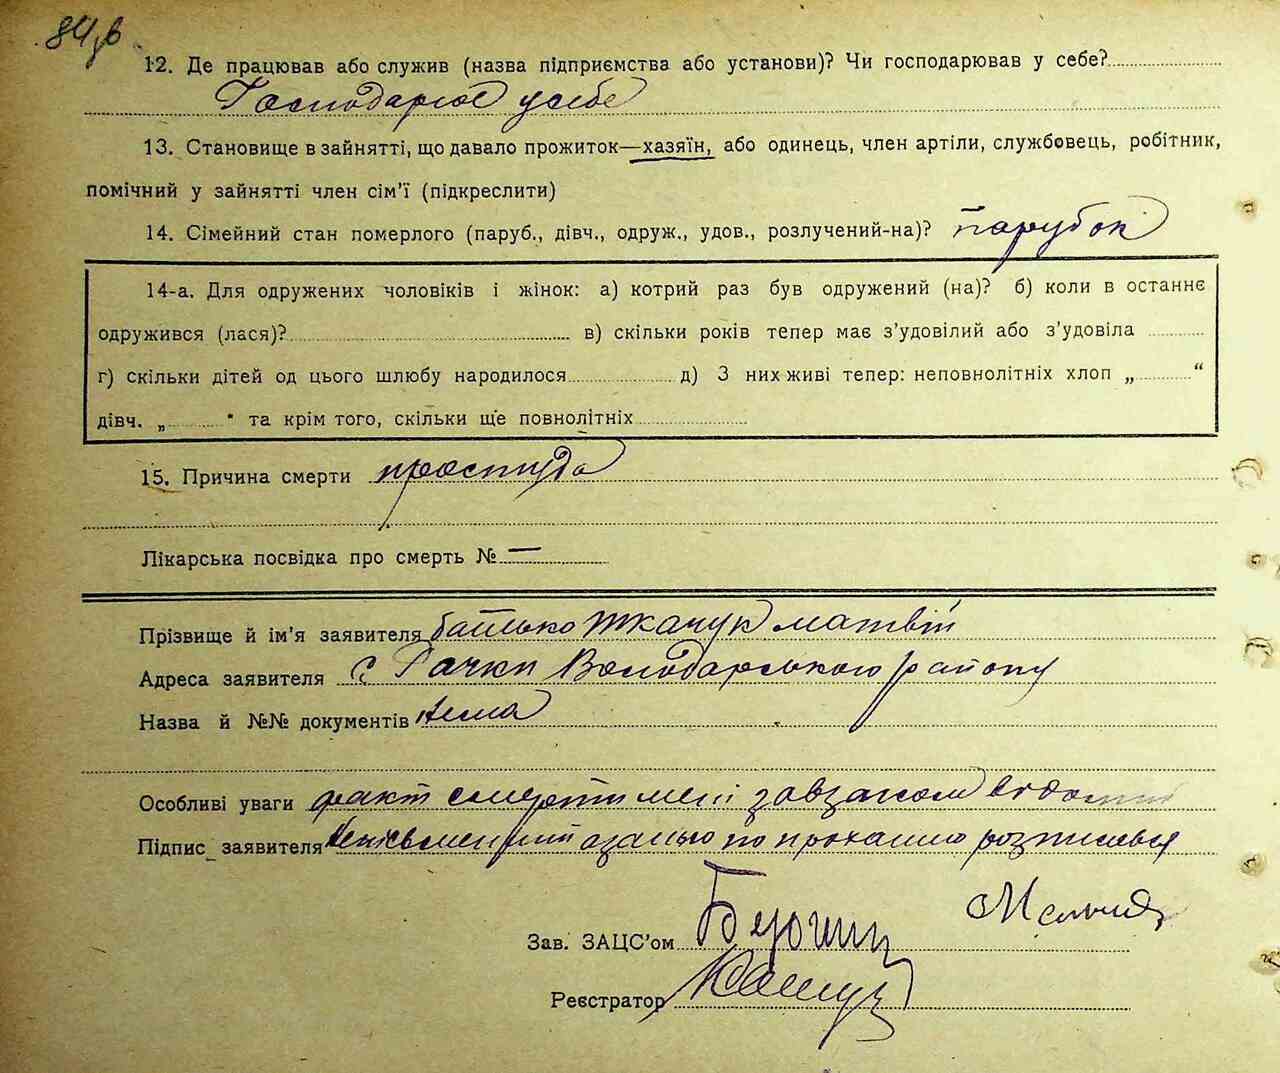 84зв
12. Де працював або служив (назва підприємства або установи)? Чи господарював у себе?
Господарює у себе
13. Становище в зайнятті, що давало прожиток—хазяїн, або одинець, член артіли, службовець, робітник,
помічний у зайнятті член сім'ї (підкреслити)
14. Сімейний стан померлого (паруб., дівч., одруж., удов., розлучений-на)? парубок
14-а. Для одружених чоловіків і жінок: а) котрий раз був одружений (на)? б) коли в останнє
одружився (лася)? в) скільки років тепер має з'удовілий або з'удовіла
г) скільки дітей од цього шлюбу народилося д) З них живі тепер: неповнолітніх хлоп „ “
дівч. „ " та крім того, скільки ще повнолітніх
15. Причина смерти простуда
Лікарська посвідка про смерть № —
Прізвище й ім'я заявителя батько Ткачук Матвій
Адреса заявителя с. Рачки Володарського району
Назва й №№ документів нема
Особливі уваги факт смерти мені
Підпис заявителя Неписьменний а за нього по проханню розписався
Зав. ЗАЦС'ом
Реєстратор